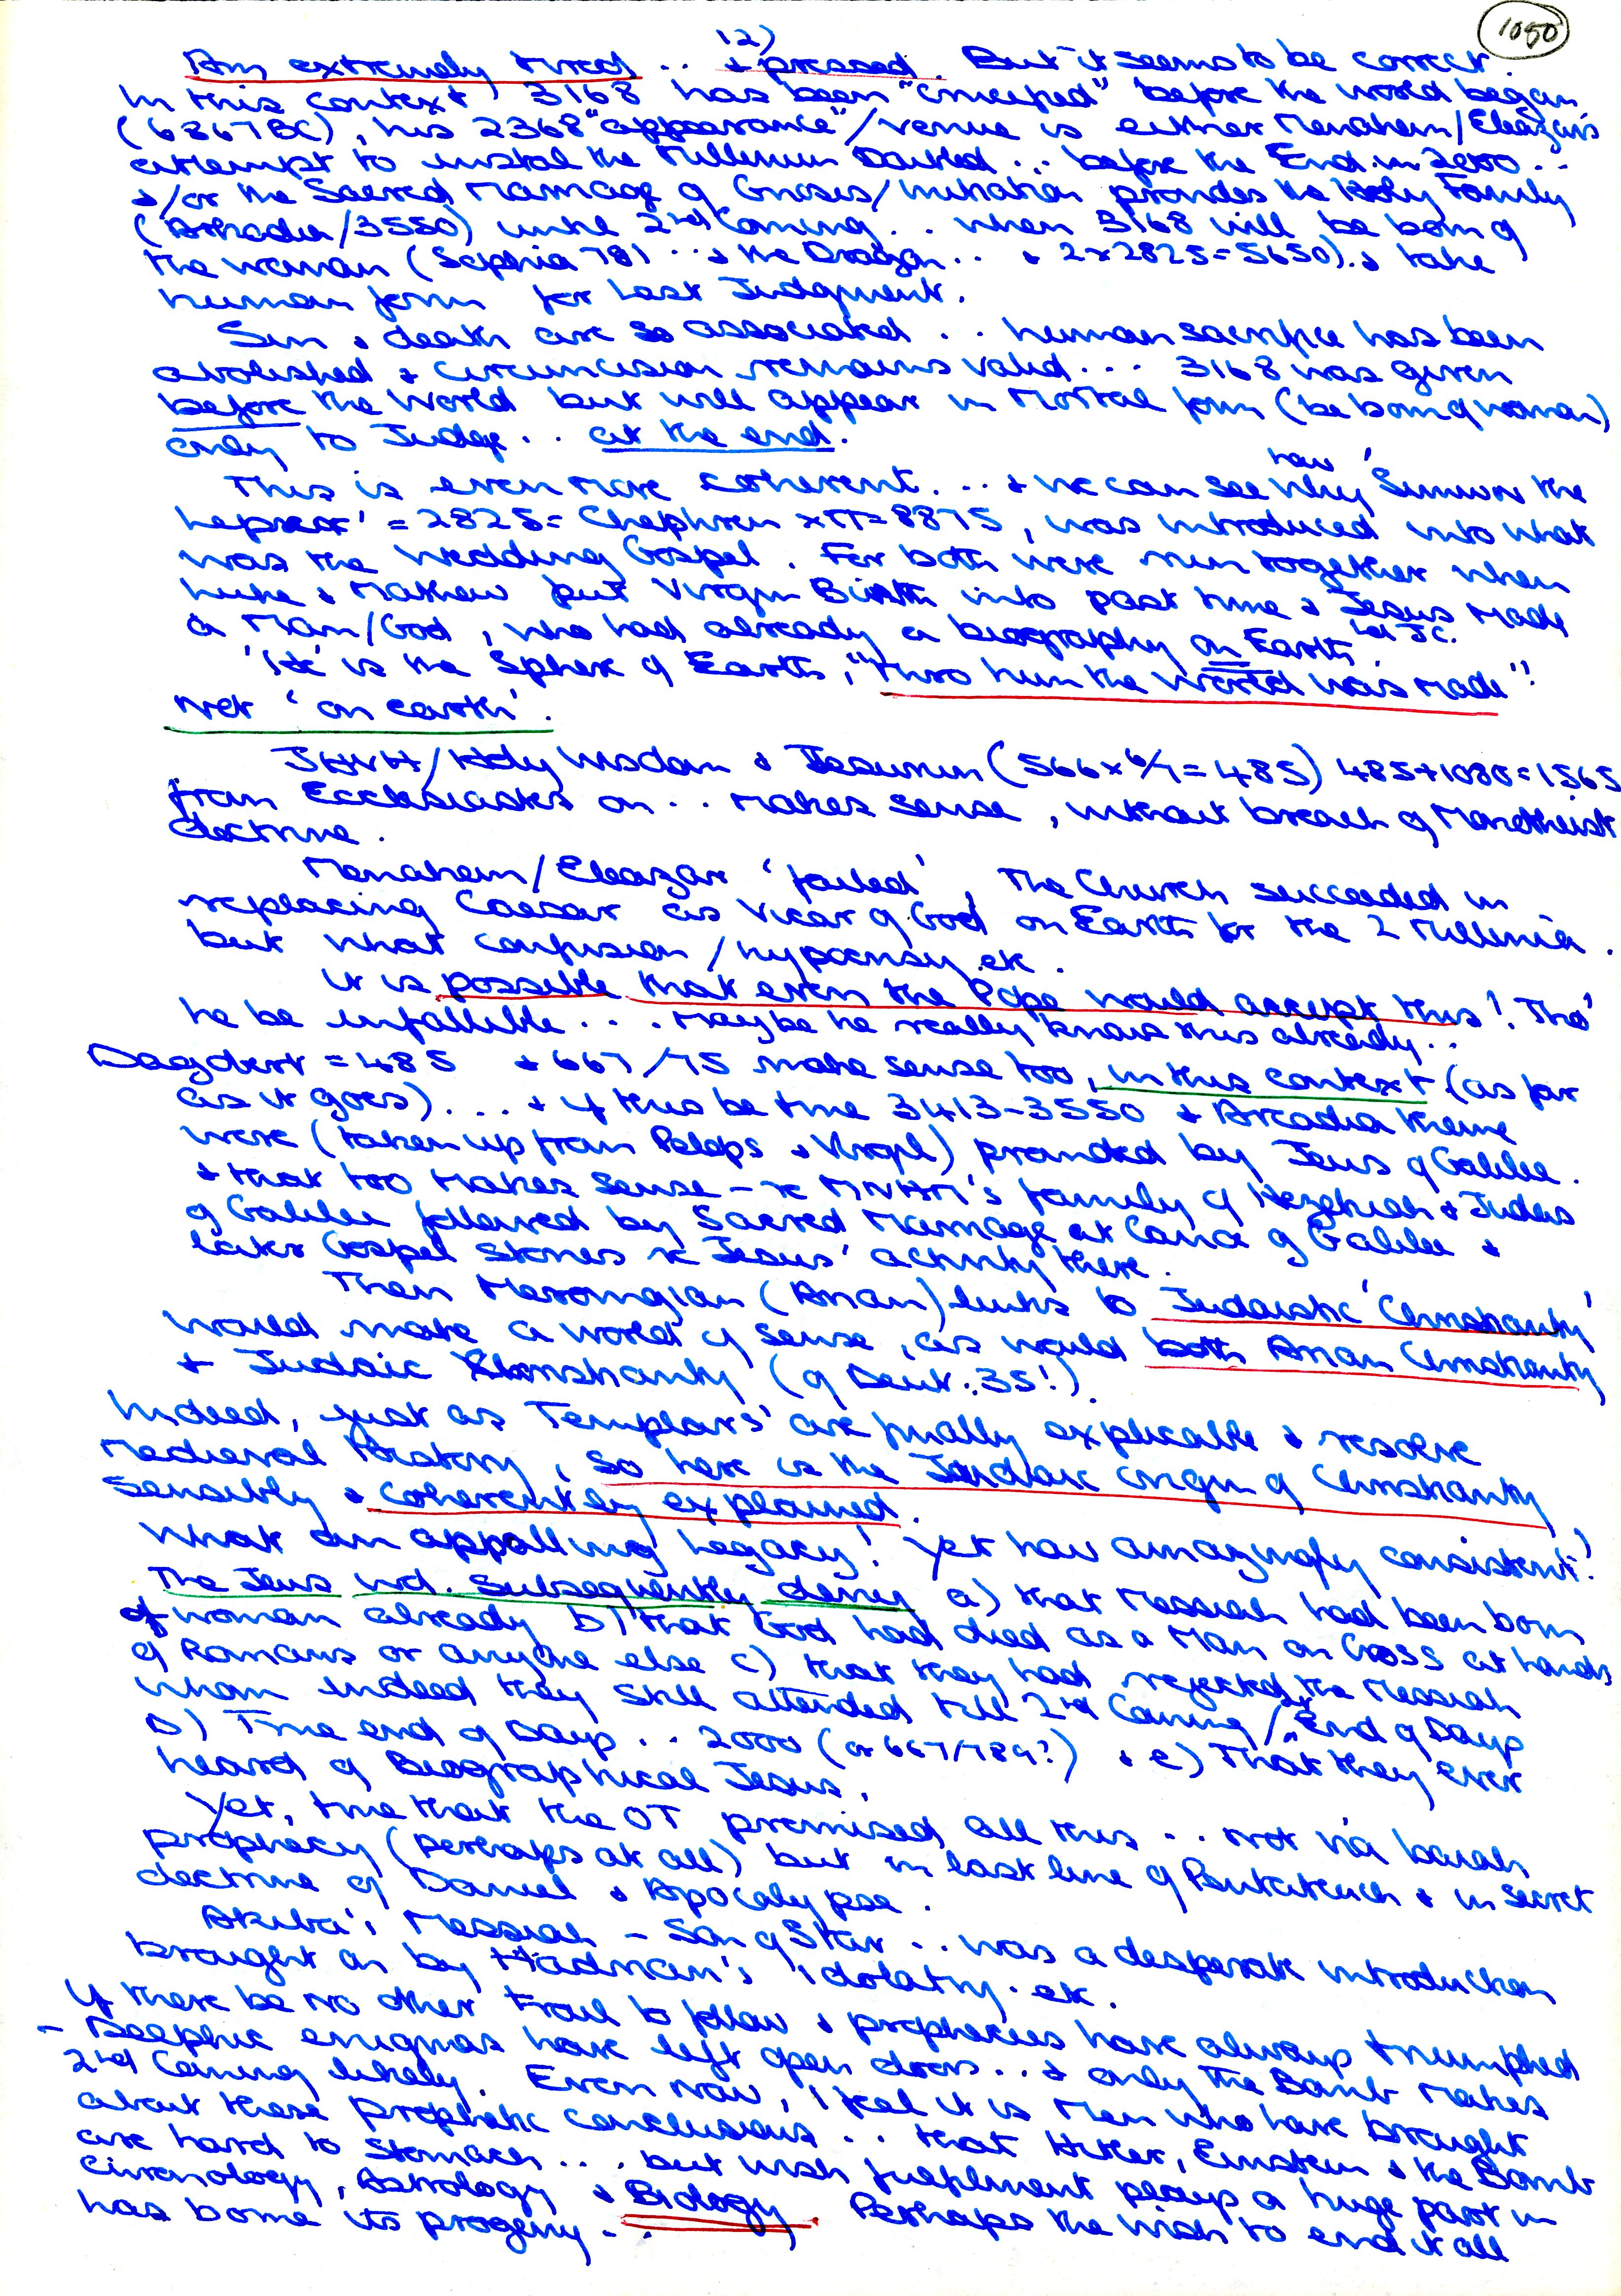 1080
12)
Am extremely tired .. & pressed. But it seems to be correct.
In this context 3168 has been "conceived" before the world began
(6367BC), his 2368 "appearance"/venue is either Menahem/Eleazar's
attempt to instal the Millenium ... before the End in 2000 ..
&/or the Sacred Marriage of Gnosis/Initiation provides the Holy Family
(Arkadia/3550) until 2nd Coming .. when 3168 will be born of
the woman (Sophia 781 .. & the Dragon .. & 2x2825=5650) & take
human form for Last Judgment.
Sin & death are so associated .. human sacrifice has been
abolished & circumcision remains valid ... 3168 was given
before the World but will appear in Mortal form (be born of woman)
only to Judge .. at the end.
This is even more coherent ... & we can see how/why 'Simon the
Leper' = 2825 = Chephren xπ=8875, was introduced into what
was the Wedding Gospel. For both were run together when
Luke & Mathew put Virgin Birth into past time & Jesus made
a Man/God, who had already a biography on Earth.
is the Sphere of Earth, "thro him the World was made"!
not 'on earth'.
JHVH/Holy Wisdom & (566x6/7=485) 485+1080=1565
from Ecclesiastes on .. makes sense, without breach of Monotheist
doctrine.
Menahem/Eleazar 'failed', The Church succeeded in
replacing Caesar as Vicar of God on Earth for the 2 Millenia.
but what confusion/hypocrisy etc.
It is possible that even the Pope would accept this! Tho'
he be infallible ... Maybe he really knows this already ..
Dagobert = 485 & 667/75 make sense too, in this context (as far
as it goes) .... & if this be true 3413-3550 & Arcadia theme
were (taken up from Pelops & Virgil) provided by Jews of Galilee.
& that too makes sense - re MNHM's family of Hezekiah & Judas
of Galilee followed by Sacred Marriage at Cana of Galilee &
later Gospel stories re Jesus' activity there.
Then Merovingian (Arian) links to Judaistic 'Christianity'
would make a world of sense, as would both Arian Christianity
& Judaic Christianity (of Deut. 35!).
Indeed, just as Templars' are finally explicable & resolve
Medieval History, so here is the Judaic origin of Christianity
sensibly & coherently explained.
What an appalling Legacy! Yet how amazingly consistent!
The Jews wd. subsequently deny a) that Messiah had been born
of woman already b) that God had died as a Man on Cross at hands
of Romans or anyone else c) that they had rejected the Messiah
whom indeed they still attended till 2nd Coming / End of Days
D) Time end of Days .. 2000 (or 667/789?) & e) That they ever
heard of Biographical Jesus.
Yet, true that the OT promised all this .. not via
prophecy (perhaps at all) but in last line of Pentateuch & in secret
doctrine of Daniel & Apocalypse.
Akiba's Messiah - Son of Star .. was a desperate introduction
brought on by Hadrian's idolatry. etc.
If there be no other trail to follow & prophecies have always triumphed
- Delphic enigmas have left open doors ... & only The Bomb makes
2nd Coming likely. Even now, I feel it is Men who have brought
about these prophetic conclusions .. that Hitler, Einstein & the Bomb
are hard to stomach ... but wish fulfilment plays a huge part in
Chronology, Astrology & Biology. Perhaps the wish to end it all
has borne its progeny ..